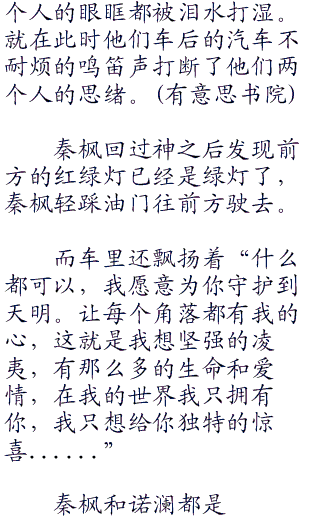 个人的眼眶都被泪水打湿。
就在此时他们车后的汽车不
耐烦的鸣笛声打断了他们两
个人的思绪。(有意思书院)
秦枫回过神之后发现前
方的红绿灯已经是绿灯了，
秦枫轻踩油门往前方驶去。
而车里还飘扬着“什么
都可以，我愿意为你守护到
天明。让每个角落都有我的
心，这就是我想坚强的凌
夷，有那么多的生命和爱
情，在我的世界我只拥有
你，我只想给你独特的惊
喜......”
秦枫和诺澜都是